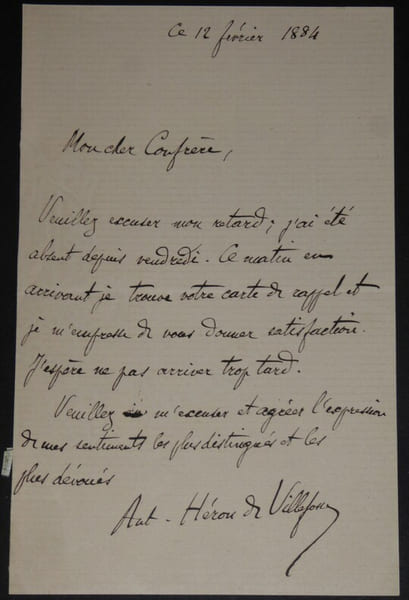 Ce 12 février 1884
Mon cher Confrère,
Veuillez excuser mon retard; j'ai été
absent depuis vendredi. Ce matin en
arrivant je trouve votre carte de rappel et
je m'empresse de vous donner satisfaction.
J'espère ne pas arriver trop tard.
Veuillez m'excuser et agréer l'expression
de mes sentiments les plus distingués et les
plus dévoués
Ant. Héron de Villefosse